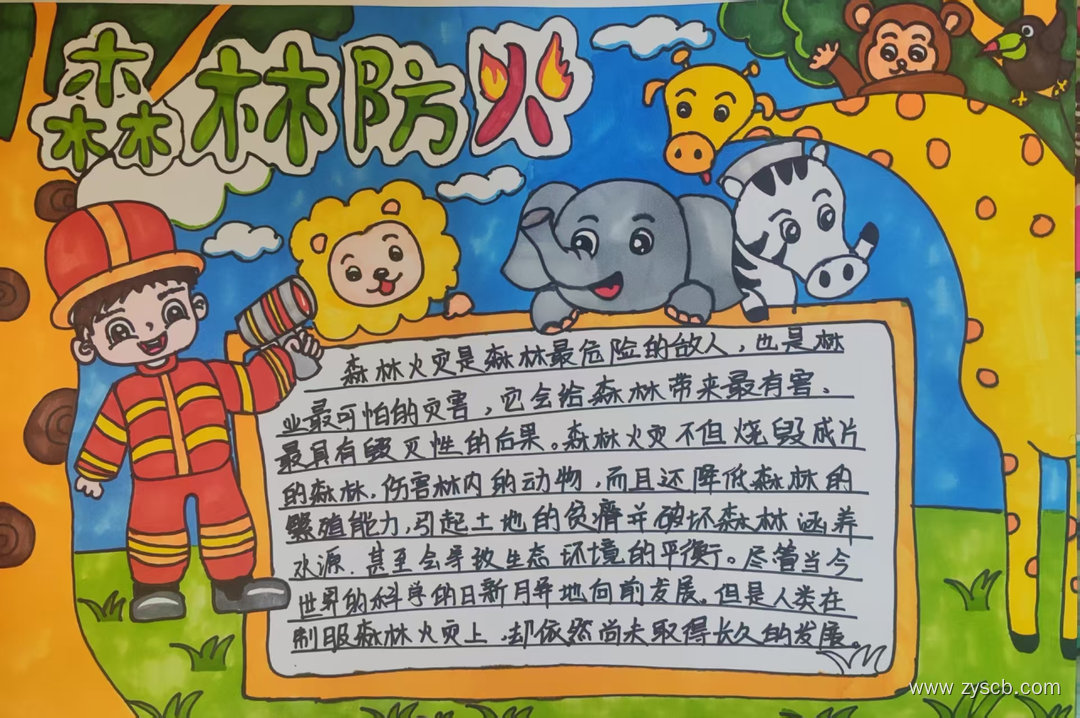 森林防火
森林火灾是森林最危险的敌人，也是林
业最可怕的灾害，它会给森林带来最有害、
最具有毁灭性的后果。森林火灾不但烧毁成片
的森林，伤害林内的动物，而且还降低森林的
繁殖能力，引起土地的贫瘠并破坏森林涵养
水源，甚至会导致生态环境的平衡。尽管当今
世界的科学的日新月异地向前发展。但是人类在
制服森林火灾上，却依然尚未取得长久的发展。
www.zyscb.com